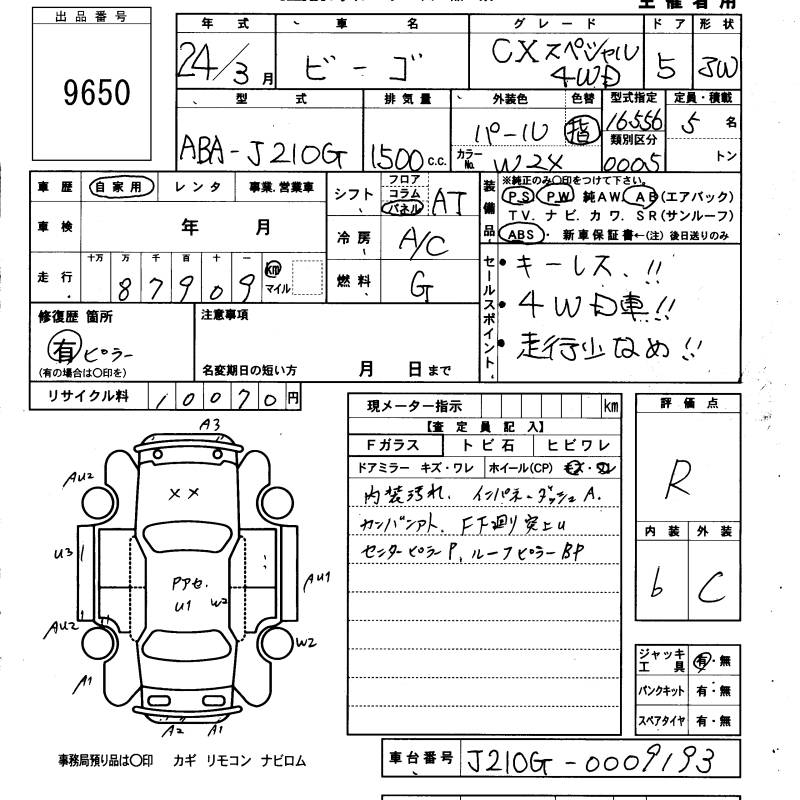 出品番号
9650
主催者用
年式 車名 グレード ドア 形状
24/3月 ビーゴ CXスペシャル 4WD 5 3W
型式 排気量 外装色 色替 型式指定 定員・積載
ABA-J210G 1500c.c. パール 指 16556 5名
カラーNo. W24 類別区分 0005 トン
車歴 自家用 レンタ 事業.営業車
車検 年 月
走行 十万 万 千 百 十 一
87909 km マイル
シフト フロア コラム パネル AT
冷房 A/C
燃料 G
装備品 ※純正のみ〇印をつけて下さい。
PS PW 純AW. AB(エアバッグ)
TV. ナビ. カワ. SR(サンルーフ)
ABS・新車保証書←(注)後日送りのみ
セールスポイント
・キーレス.!!
・4WD車!!
・走行少なめ!!
修復歴 箇所
有 ピラー
(有の場合は〇印を)
注意事項
名変期日の短い方 月 日まで
リサイクル料 10070円
現メーター指示 km
【査定員記入】
Fガラス トビ石 ヒビワレ
ドアミラー キズ・ワレ ホイール(CP) キズ・ワレ
内装汚れ. インパネ・ダッシュA.
カンバンアト. FF廻り突上U
センターピラーP. ルーフピラーBP
評価点
R
内装 外装
b C
ジャッキ工具 有・無
パンクキット 有・無
スペアタイヤ 有・無
A3
AU2
XX
U3
Pアセ.
U1 W2
AU1
AU2
W2
A1
A2 A1
事務局預り品は〇印 カギ リモコン ナビロム
車台番号 J210G-0009193